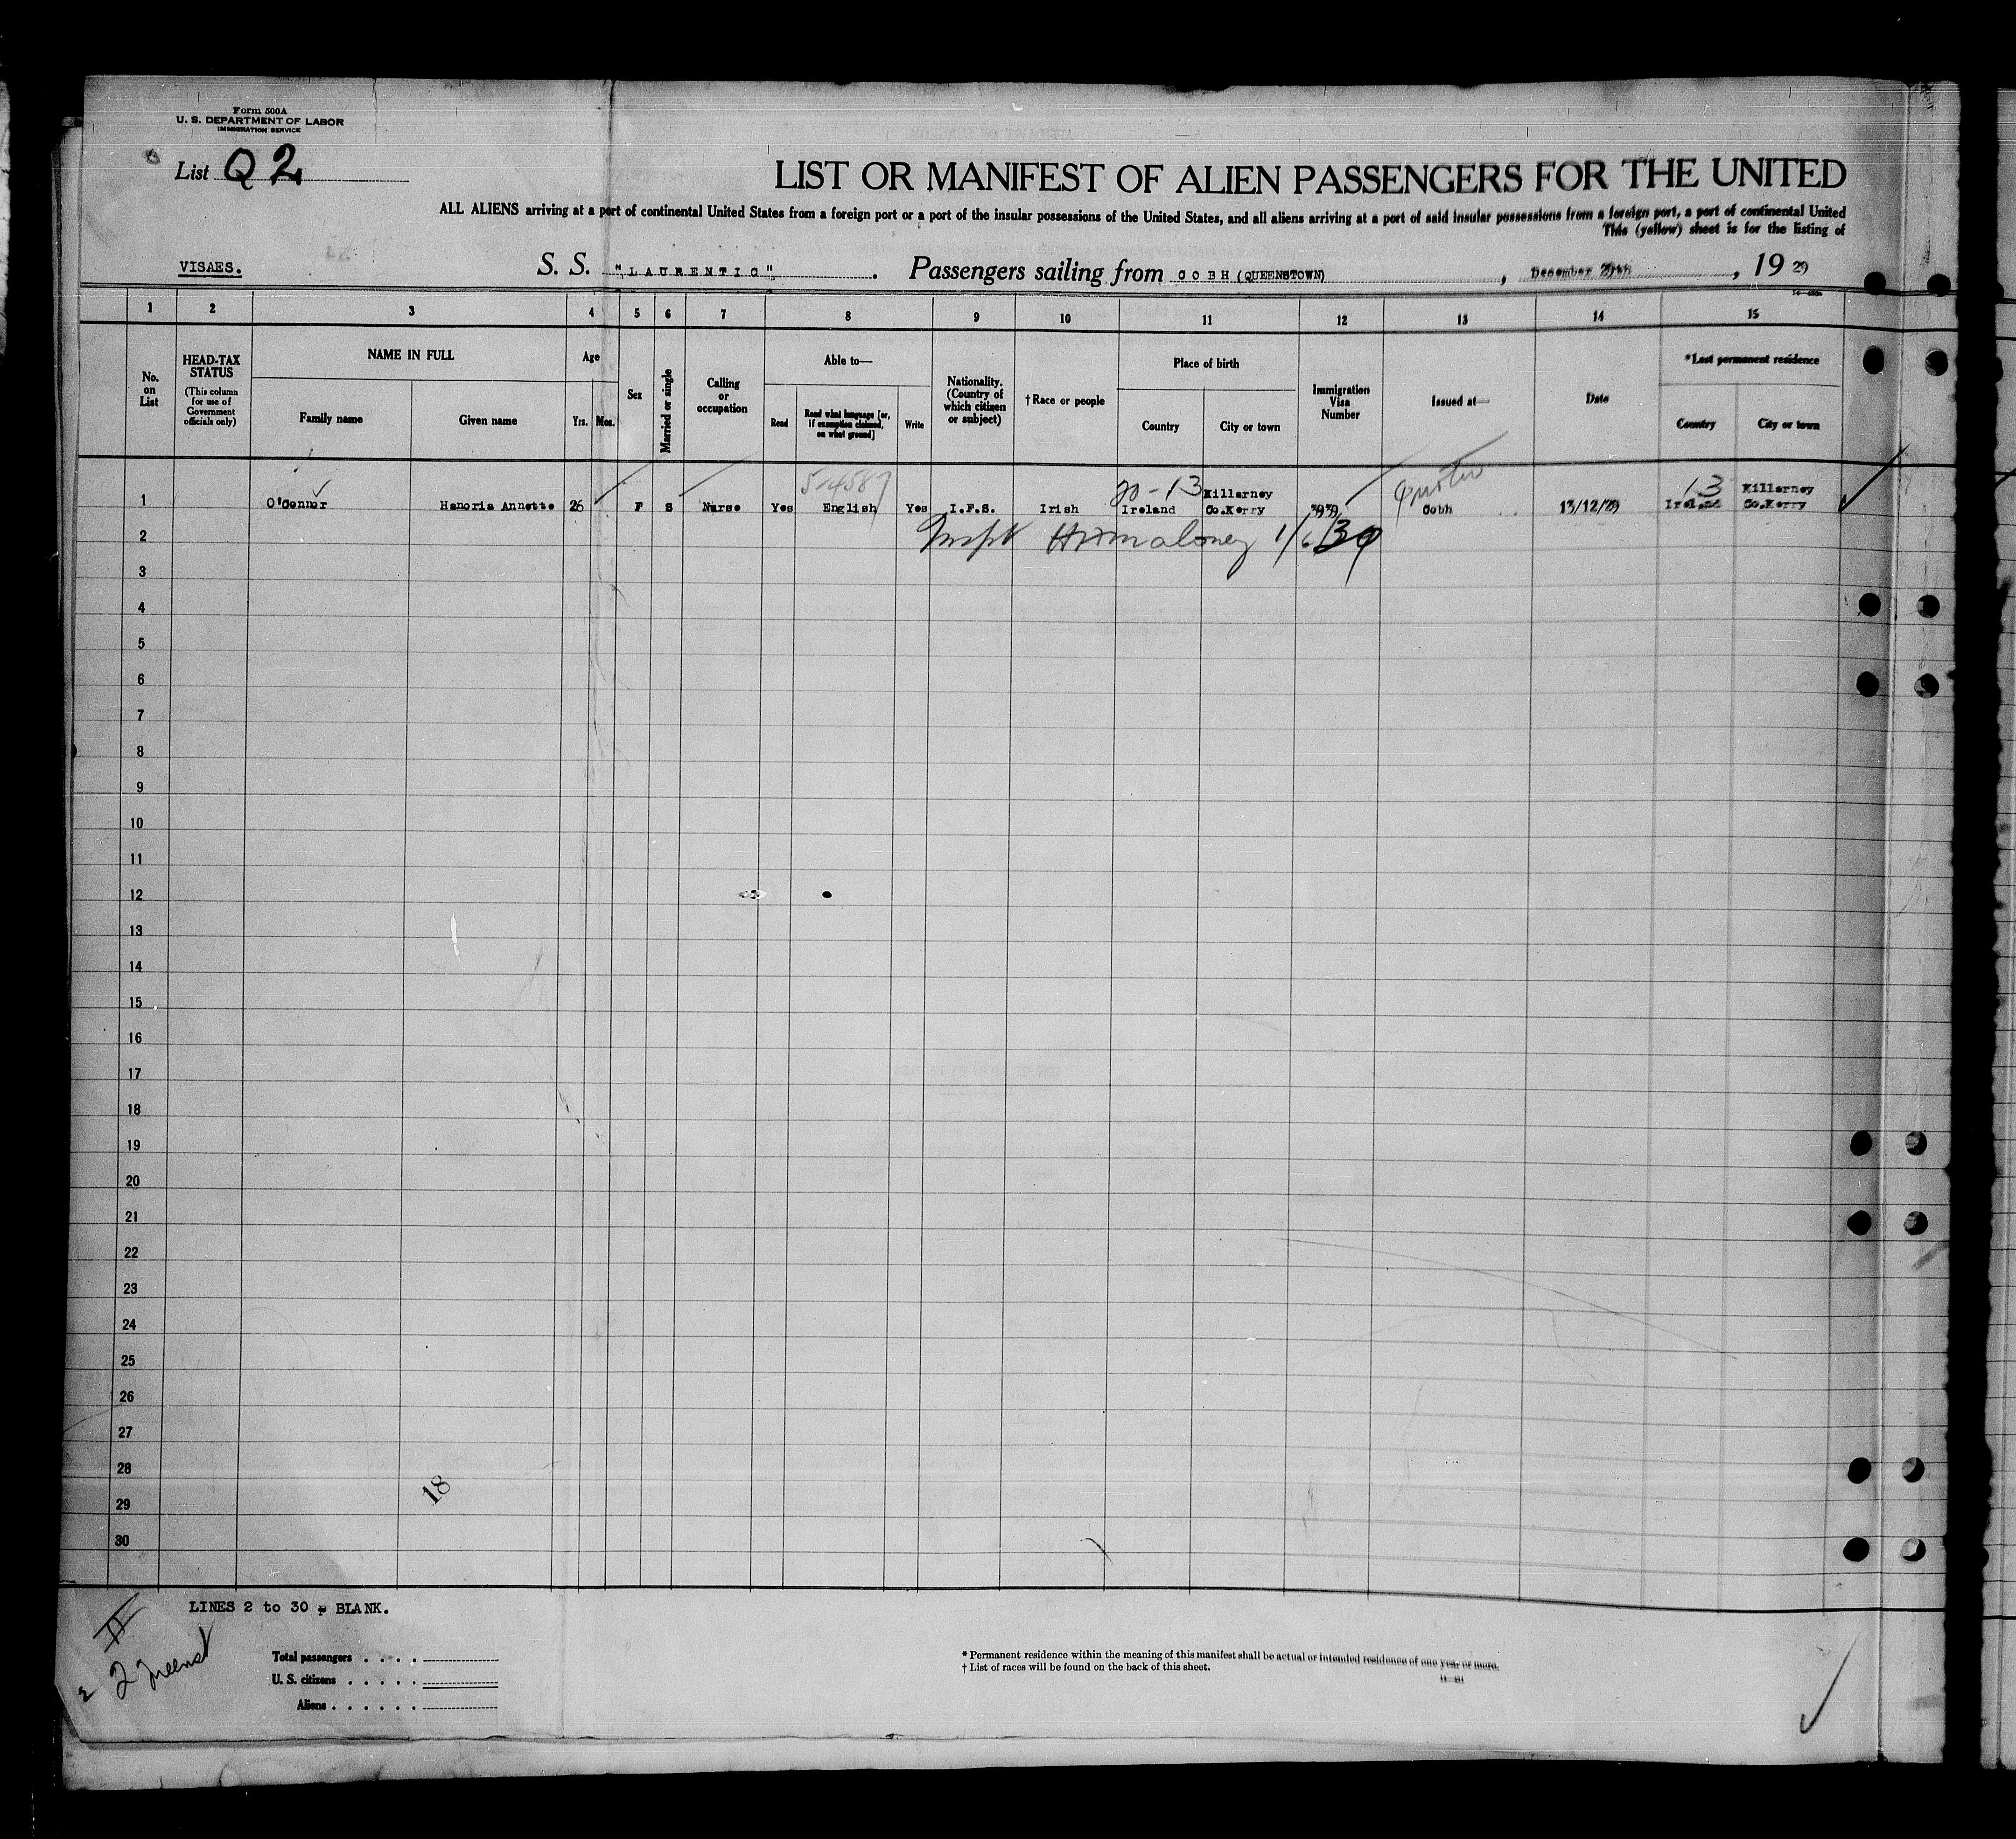 Form 500A
U. S. DEPARTMENT OF LABOR
IMMIGRATION SERVICE
List Q 2
LIST OR MANIFEST OF ALIEN PASSENGERS FOR THE UNITED
ALL ALIENS arriving at a port of continental United States from a foreign port or a port of the insular possessions of the United States, and all aliens arriving at a port of said insular possessions from a foreign port, a port of continental United
This (yellow) sheet is for the listing of
VISAES. S. S. "LAURENTIC" . Passengers sailing from COBH (QUEENSTOWN), December 29th, 19 29
1 2 3 4 5 6 7 8 9 10 11 12 13 14 15
No. on List
HEAD-TAX STATUS (This column for use of Government officials only)
NAME IN FULL
Family name Given name
Age
Yrs. Mos.
Sex
Married or single
Calling or occupation
Able to—
Read Read what language [or, if exemption claimed, on what ground] Write
Nationality. (Country of which citizen or subject)
†Race or people
Place of birth
Country City or town
Immigration Visa Number
Issued at—
Date
*Last permanent residence
Country City or town
5-4587 20-13 13
1 O'Connor Hanoria Annette 26 F S Nurse Yes English Yes I.F.S. Irish Ireland Killarney Co.Kerry Cobh 13/12/29 Ireland Killarney Co.Kerry
2 Maloney 1/6/30
3
4
5
6
7
8
9
10
11
12
13
14
15
16
17
18
19
20
21
22
23
24
25
26
27
28
29
30
18
LINES 2 to 30 BLANK.
Total passengers . . . .
U. S. citizens . . . . .
Aliens . . . . . .
* Permanent residence within the meaning of this manifest shall be actual or intended residence of one year or more.
† List of races will be found on the back of this sheet.